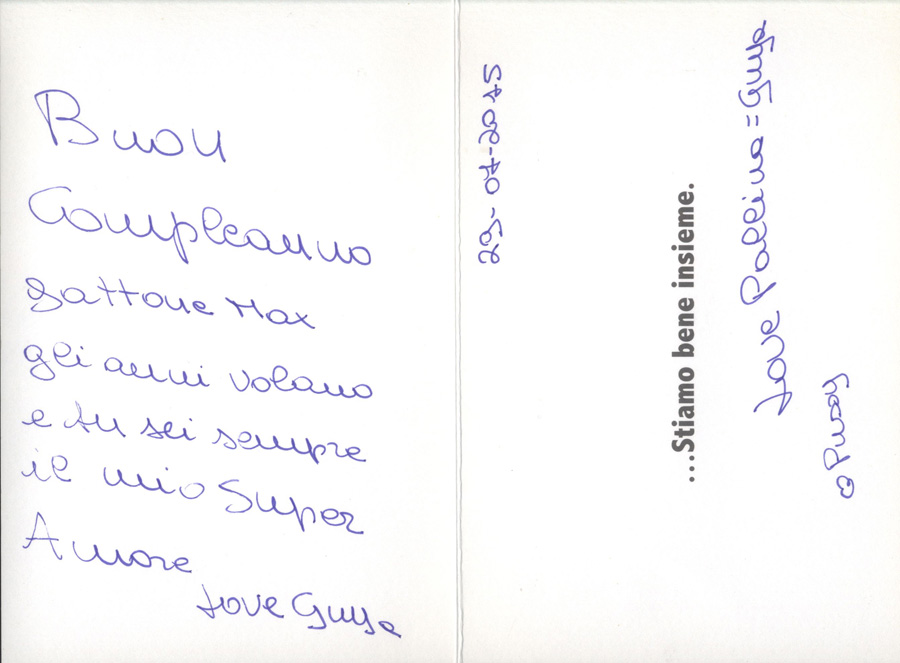 Buon
Compleanno
gattone Max
gli anni volano
e tu sei sempre
il mio Super
Amore
Love Guya
29-07-2015
...Stiamo bene insieme.
Love Pallina = Guya
Pussy